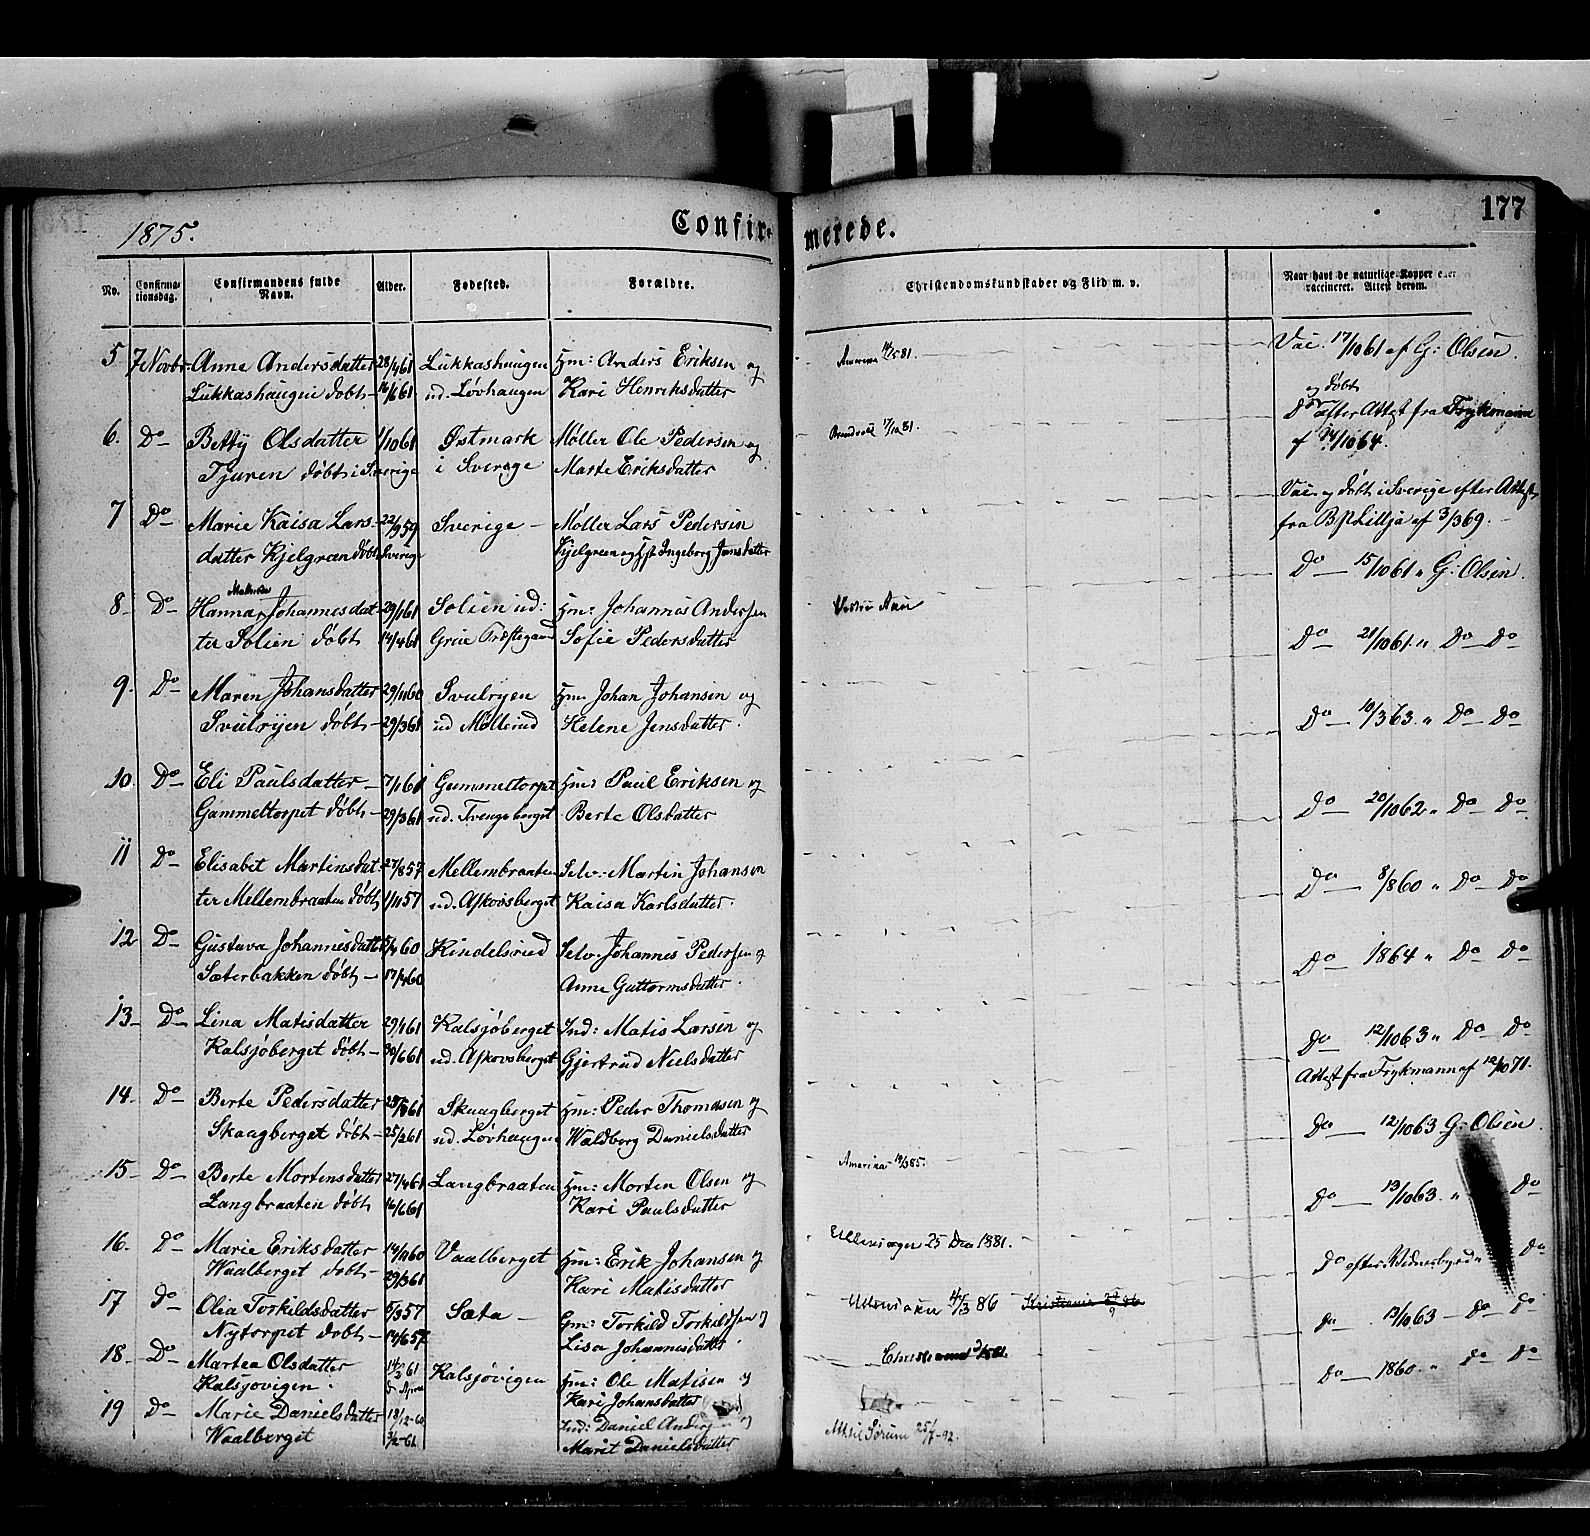 177
1875.
Confirmerede.
No.
Confirmationsdag.
Confirmandens fulde Navn.
Alder.
Fødested.
Forældre.
Christendomskundskaber og Flid m. v.
Naar havt de naturlige Kopper eller vaccineret. Attest derom.
5 7 Novbr Anne Andersdatter 28/4 61 Lukkashaugen Hm: Anders Eriksen og Amerika 81. Vac. 17/10 61 af G: Olsen.
Lukkashaugen døbt 16/6 61 ud. Løvhaugen Kari Henriksdatter
og døbt
6. Do Betty Olsdatter 1/10 61 Østmark Møller Ole Pedersen og Brandvold 17/10 81. Do efter Attest fra Frykmann
Tjuren døbt i Sverige i Sverige Marte Eriksdatter af 14/10 64.
7 Do Marie Kaisa Lars- 22/9 59 Sverige Møller Lars Pedersen Vac. og døbt i Sverige efter Attest
datter Kjelgræn døbt Sverige Kjelgreen og Hst Ingeborg Jansdatter fra B.P. Lillja af 3/3 69.
8. Do Hanna Johannesdat- 29/1 61 Solien ud: Hm: Johannes Andersen Vestre Aur Do 15/10 61 " G: Olsen.
ter Solien døbt 14/4 61 Grue Præstegaard Sofie Pedersdatter
9. Do Maren Johansdatter 29/11 60 Svulryen Hm. Johan Johansen og Do 21/10 61. " Do Do
Svulryen døbt 29/3 61 ud Møllerud Helene Jensdatter.
10 Do Eli Paulsdatter 7/1 61 Gammeltorpet Hm: Paul Eriksen og Do 10/3 63. " Do Do
Gammeltorpet døbt 29/3 61 ud. Tvengsberget Berte Olsdatter
11 Do Elisabet Martinsdat- 27/8 57 Mellembraaten Selv. Martin Johansen Do 20/10 62 " Do Do
ter Mellembraaten døbt 1/11 57 ud. Askovsberget Kaisa Karlsdatter.
12 Do Gustava Johannesdatter 60 Kindelsrud Selv. Johannes Pedersen og Do 8/8 60 " Do Do
Sæterbakken døbt 17/4 60 Anne Guttormsdatter. Do 1864 " Do Do
13. Do Lina Matisdatter 29/4 61 Kalsjøberget Ind: Matis Larsen og Do 12/10 63 " Do Do
Kalsjøberget døbt 30/6 61 ud. Askovsberget Gjertrud Nielsdatter Attest fra Frykmann af 12/10 71.
14. Do Berte Pedersdatter 61 Skaagberget Hm: Peder Thomasen og Do 12/10 63 G: Olsen.
Skaagberget døbt 25/2 61 ud. Løvhaugen Waldborg Danielsdatter
15. Do Berte Mortensdatter 27/4 61 Langbraaten Hm: Morten Olsen og Amerika 85. Do 13/10 63. " Do
Langbraaten døbt 16/6 61 Kari Paulsdatter
16. Do Marie Eriksdatter 14/11 60 Vaalberget Hm: Erik Johansen og Ullensager 25 Dec 1881. Do efter Vidnesbyrd " Do
Waalberget døbt 29/3 61 Kari Matisdatter
17 Do Olia Torkildsdatter 5/3 57 Sæta Gm: Torkild Torkildsen og Ullensaker 4/13 86 Kristiania 86 Do 12/10 63 Do Do
Nytorpet døbt 14/6 57 Lisa Johannesdatter
18. Do Martea Olsdatter 14/2 61 Kalsjøvigen Hm: Ole Matisen og 81. Do 1860 " Do Do
Kalsjøvigen. Kari Johansdatter
19 Do Marie Danielsdatter 18/12 60 Ind: Daniel Andersen og
Waalberget 3/2 61 Marit Danielsdatter Sørum 25/7 92.